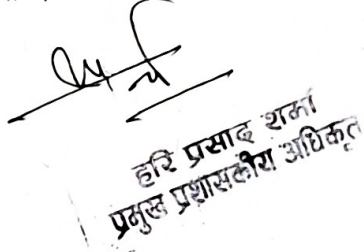 हरि प्रसाद शर्मा
प्रमुख प्रशासकीय अधिकृत